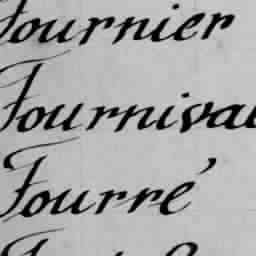 Fournier
Fournival
Fourré